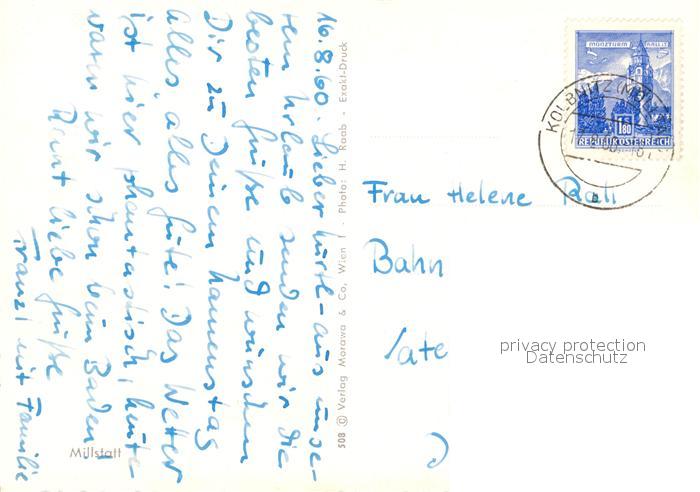 16.8.60. Lieber Kurtl - aus unse-
rem Urlaub senden wir die
besten Grüße und wünschen
Dir zu Deinem Namenstag
alles alles Gute! Das Wetter
ist hier phantastisch, heute
waren wir schon beim Baden!
liebe Grüße
Franzl mit Familie
Millstatt
508 © Verlag Morawa & Co, Wien I · Photo: H. Raab · Exakt-Druck
MÜNZTURM HALL I.T.
1.80
REPUBLIK ÖSTERREICH
KOLBNITZ
Frau Helene
Bahn
privacy protection
Datenschutz